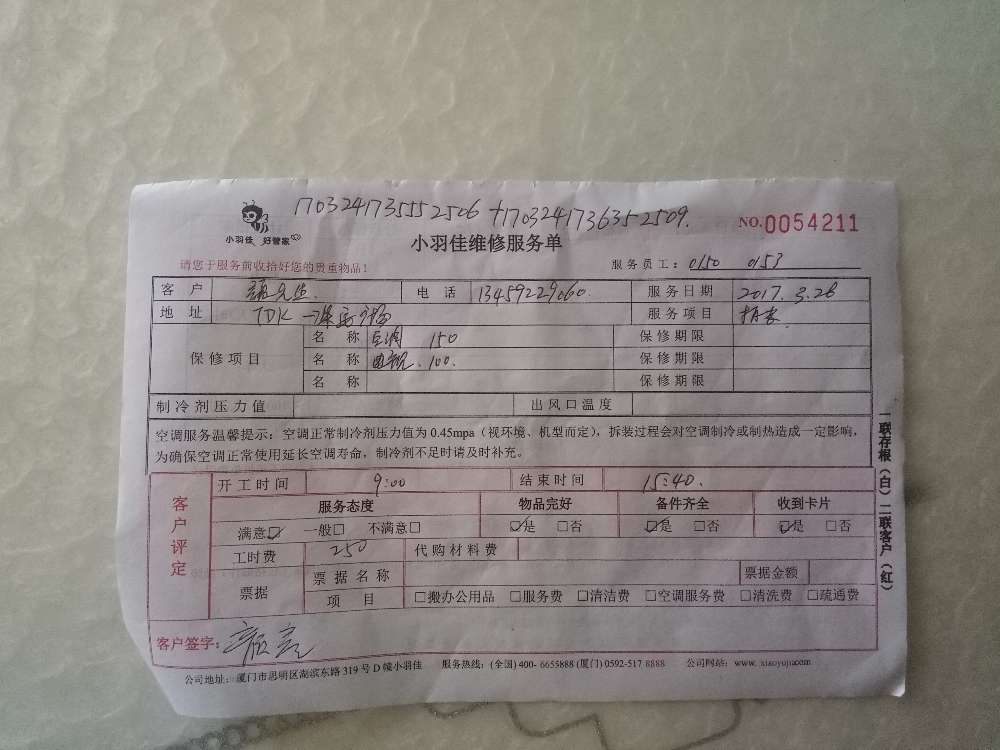 1703241735552506 + 1703241736352509.
小羽佳 好管家
小羽佳维修服务单
NO.0054211
请您于服务前收拾好您的贵重物品!
服务员工: 0150 0153
客户 先生. 电话 13459229060. 服务日期 2017.3.28
地址 TDK 服务项目
保修项目 名称 空调 150 保修期限
名称 电视. 100. 保修期限
名称 保修期限
制冷剂压力值 出风口温度
空调服务温馨提示:空调正常制冷剂压力值为 0.45mpa(视环境、机型而定),拆装过程会对空调制冷或制热造成一定影响,
为确保空调正常使用延长空调寿命,制冷剂不足时请及时补充。
客户评定
开工时间 9:00 结束时间 15:40.
服务态度 物品完好 备件齐全 收到卡片
满意☑ 一般□ 不满意□ ☑是 □否 ☑是 □否 ☑是 □否
工时费 250 代购材料费
票据 票据名称 票据金额
项目 □搬办公用品 □服务费 □清洁费 □空调服务费 □清洗费 □疏通费
客户签字:
公司地址:厦门市思明区湖滨东路 319 号 D 幢小羽佳 服务热线:(全国) 400- 6655888 (厦门) 0592-517 8888 公司网站: www. xiaoyujia.com
一联存根(白)二联客户(红)